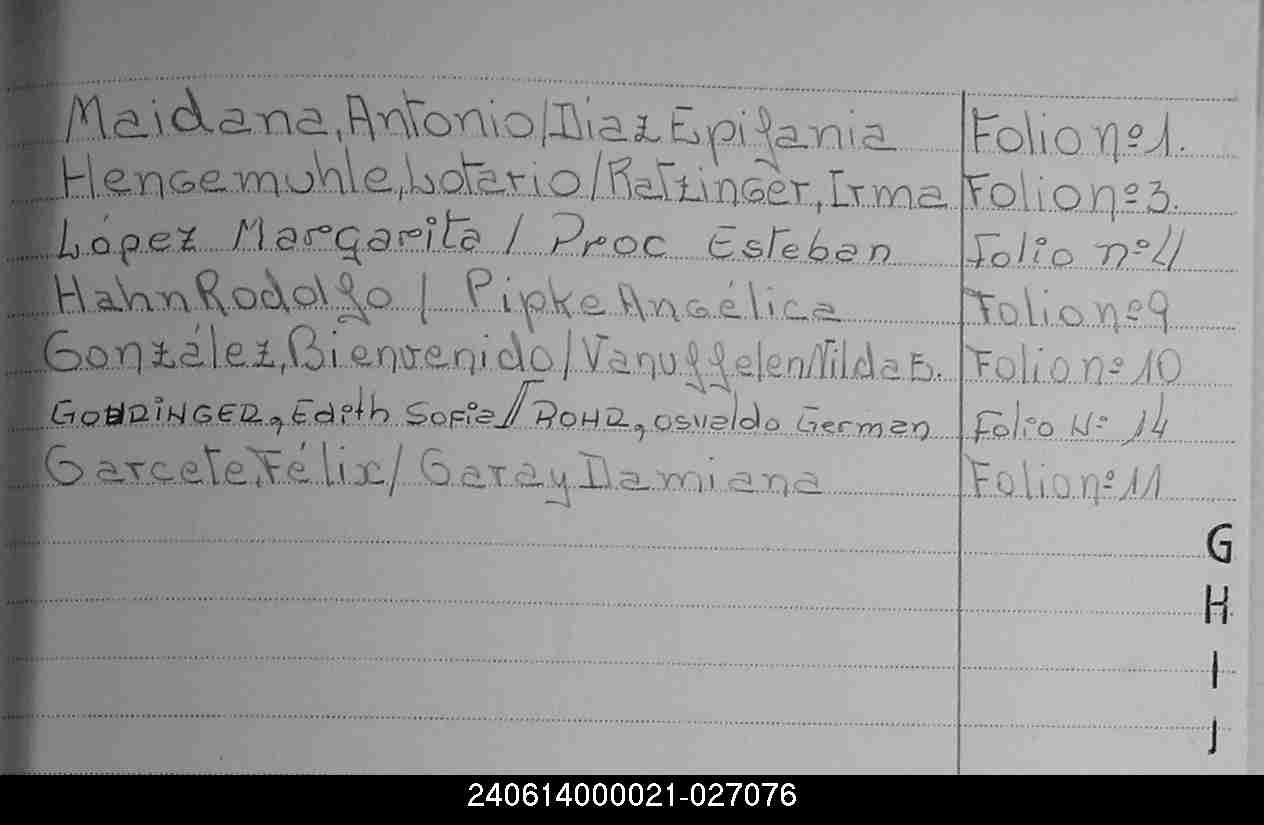 Maidana, Antonio/Diaz Epifania Folio nº 1.
Hengemuhle, Lotario/Ratzinger, Irma Folio nº 3.
López Margarita / Proc Esteban Folio nº 4
Hahn Rodolfo / Pipke Angélica Folio nº 9
González, Bienvenido/Vanuffelen Nilda E. Folio nº 10
Edith Sofia/ROHR, Osvaldo German Folio Nº 14
Garcete, Félix/Garay Damiana Folio nº 11
G
H
I
J
240614000021-027076